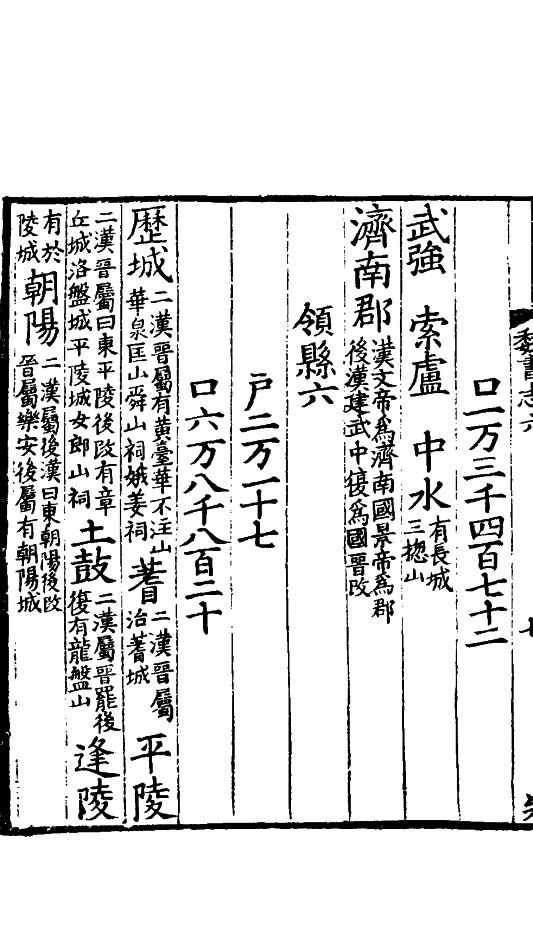 魏書志六
口一万三千四百七十二
武強 索盧 中水 有長城三揔山
濟南郡 漢文帝爲濟南國景帝爲郡後漢建武中復爲國晋改
領縣六
戶二万一十七
口六万八千八百二十
歷城 二漢晋屬有黃臺華不注山華泉匡山舜山祠娥姜祠 蓍 二漢晋屬治蓍城 平陵
二漢晋屬曰東平陵後改有章丘城洛盤城平陵城女郎山祠 土鼓 二漢屬晋罷後復有龍盤山 逢陵
有於陵城 朝陽 二漢屬後漢曰東朝陽後改晋屬樂安後屬有朝陽城